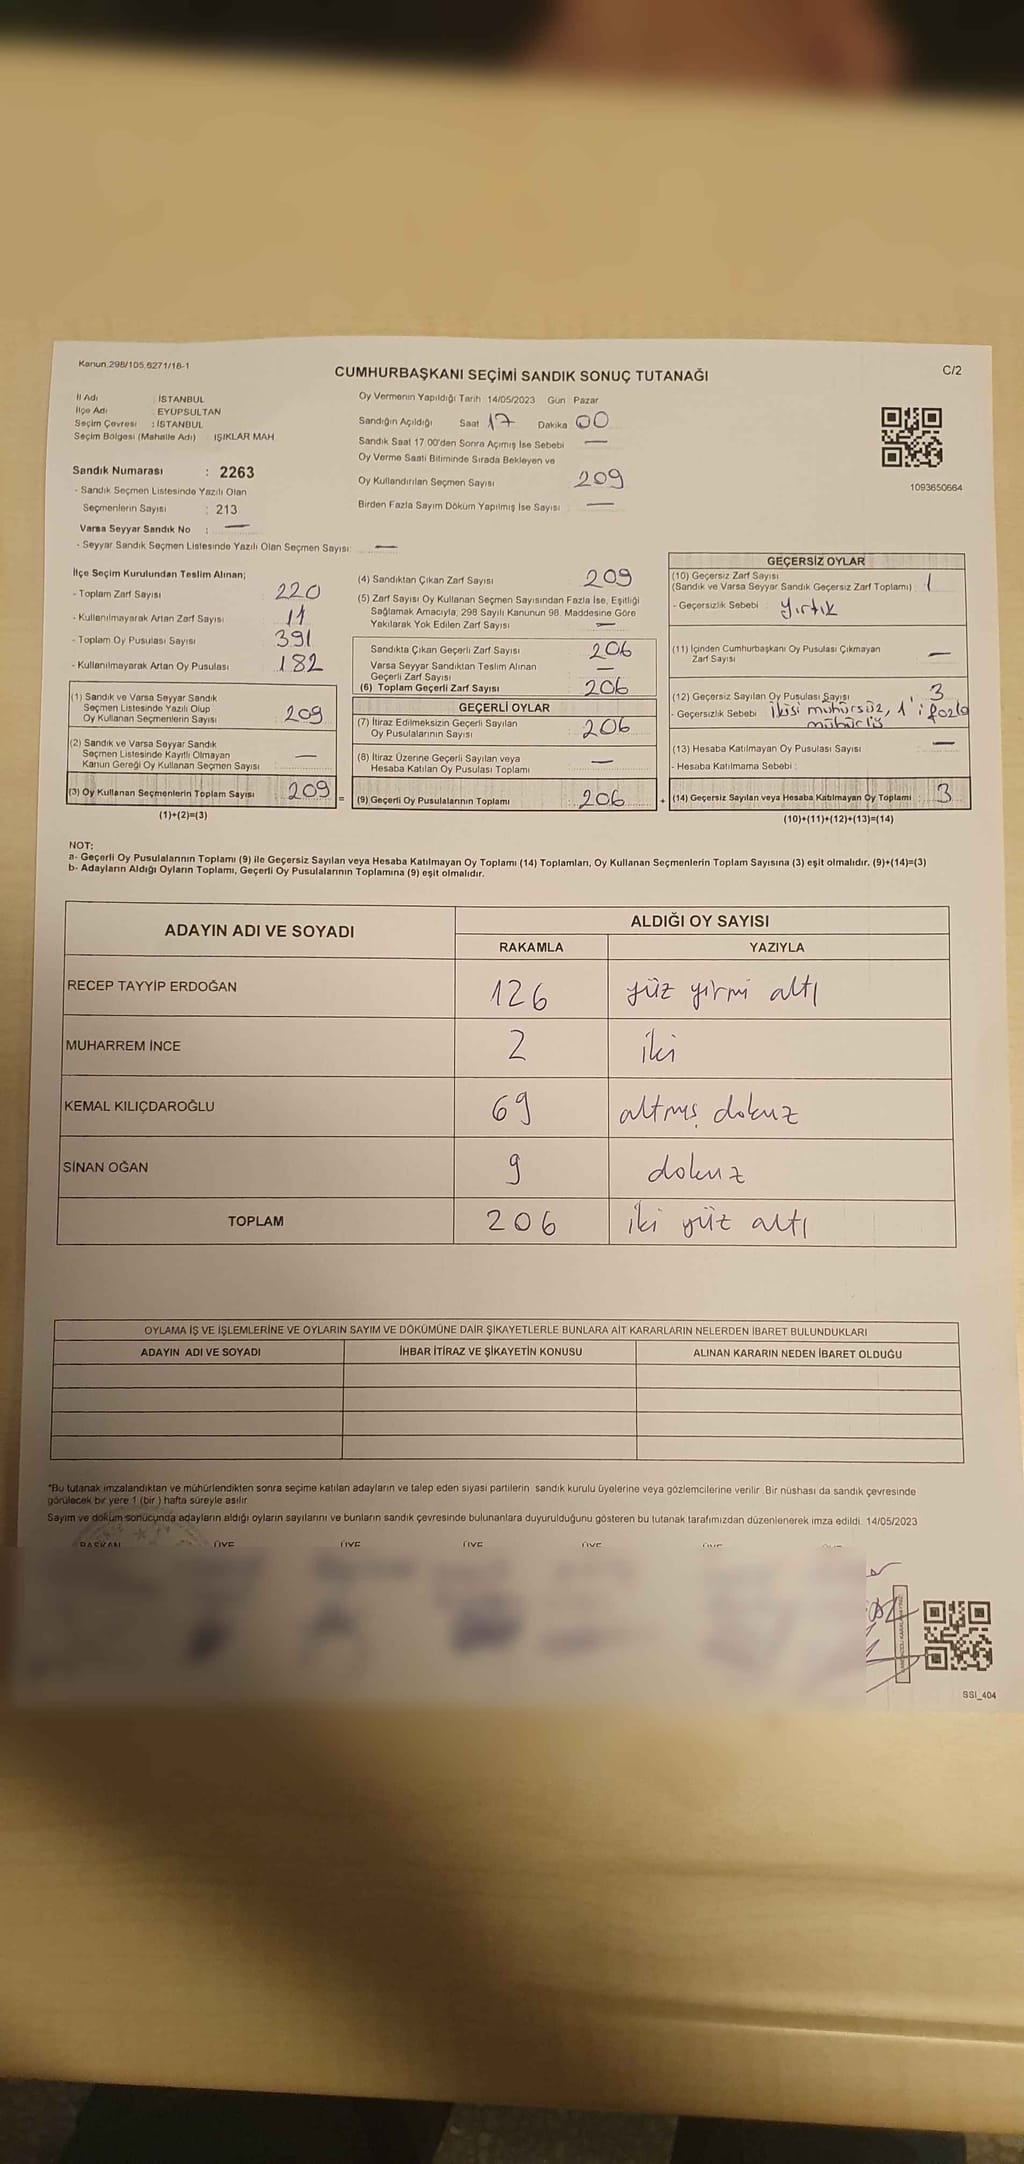 Kanun.298/105,6271/16-1
CUMHURBAŞKANI SEÇİMİ SANDIK SONUÇ TUTANAĞI
C/2
İl Adı : İSTANBUL
İlçe Adı : EYÜPSULTAN
Seçim Çevresi : İSTANBUL
Seçim Bölgesi (Mahalle Adı) : IŞIKLAR MAH.
Sandık Numarası : 2263
- Sandık Seçmen Listesinde Yazılı Olan
Seçmenlerin Sayısı : 213
Varsa Seyyar Sandık No : —
- Seyyar Sandık Seçmen Listesinde Yazılı Olan Seçmen Sayısı: —
Oy Vermenin Yapıldığı Tarih 14/05/2023 Gün Pazar
Sandığın Açıldığı Saat 17 Dakika 00
Sandık Saat 17.00'den Sonra Açımış İse Sebebi —
Oy Verme Saati Bitiminde Sırada Bekleyen ve
Oy Kullandırılan Seçmen Sayısı 209
Birden Fazla Sayım Döküm Yapılmış İse Sayısı —
1093650664
İlçe Seçim Kurulundan Teslim Alınan;
- Toplam Zarf Sayısı 220
- Kullanılmayarak Artan Zarf Sayısı 11
- Toplam Oy Pusulası Sayısı 391
- Kullanılmayarak Artan Oy Pusulası 182
(1) Sandık ve Varsa Seyyar Sandık
Seçmen Listesinde Yazılı Olup
Oy Kullanan Seçmenlerin Sayısı 209
(2) Sandık ve Varsa Seyyar Sandık
Seçmen Listesinde Kayıtlı Olmayan
Kanun Gereği Oy Kullanan Seçmen Sayısı —
(3) Oy Kullanan Seçmenlerin Toplam Sayısı 209
(1)+(2)=(3)
(4) Sandıktan Çıkan Zarf Sayısı 209
(5) Zarf Sayısı Oy Kullanan Seçmen Sayısından Fazla İse, Eşitliği
Sağlamak Amacıyla; 298 Sayılı Kanunun 98. Maddesine Göre
Yakılarak Yok Edilen Zarf Sayısı —
Sandıkta Çıkan Geçerli Zarf Sayısı 206
Varsa Seyyar Sandıktan Teslim Alınan
Geçerli Zarf Sayısı —
(6) Toplam Geçerli Zarf Sayısı 206
GEÇERLİ OYLAR
(7) İtiraz Edilmeksizin Geçerli Sayılan
Oy Pusulalarının Sayısı 206
(8) İtiraz Üzerine Geçerli Sayılan veya
Hesaba Katılan Oy Pusulası Toplamı —
= (9) Geçerli Oy Pusulalarının Toplamı 206
GEÇERSİZ OYLAR
(10) Geçersiz Zarf Sayısı
(Sandık ve Varsa Seyyar Sandık Geçersiz Zarf Toplamı) : 1
- Geçersizlik Sebebi : Yırtık
(11) İçinden Cumhurbaşkanı Oy Pusulası Çıkmayan
Zarf Sayısı —
(12) Geçersiz Sayılan Oy Pusulası Sayısı 3
- Geçersizlik Sebebi ikisi mühürsüz, 1'i fazla
mühürlü
(13) Hesaba Katılmayan Oy Pusulası Sayısı —
- Hesaba Katılmama Sebebi :
+ (14) Geçersiz Sayılan veya Hesaba Katılmayan Oy Toplamı 3
(10)+(11)+(12)+(13)=(14)
NOT:
a- Geçerli Oy Pusulalarının Toplamı (9) ile Geçersiz Sayılan veya Hesaba Katılmayan Oy Toplamı (14) Toplamları, Oy Kullanan Seçmenlerin Toplam Sayısına (3) eşit olmalıdır. (9)+(14)=(3)
b- Adayların Aldığı Oyların Toplamı, Geçerli Oy Pusulalarının Toplamına (9) eşit olmalıdır.
ADAYIN ADI VE SOYADI
ALDIĞI OY SAYISI
RAKAMLA YAZIYLA
RECEP TAYYİP ERDOĞAN 126 yüz yirmi altı
MUHARREM İNCE 2 iki
KEMAL KILIÇDAROĞLU 69 altmış dokuz
SİNAN OĞAN 9 dokuz
TOPLAM 206 iki yüz altı
OYLAMA İŞ VE İŞLEMLERİNE VE OYLARIN SAYIM VE DÖKÜMÜNE DAİR ŞİKAYETLERLE BUNLARA AİT KARARLARIN NELERDEN İBARET BULUNDUKLARI
ADAYIN ADI VE SOYADI İHBAR İTİRAZ VE ŞİKAYETİN KONUSU ALINAN KARARIN NEDEN İBARET OLDUĞU
*Bu tutanak imzalandıktan ve mühürlendikten sonra seçime katılan adayların ve talep eden siyasi partilerin sandık kurulu üyelerine veya gözlemcilerine verilir. Bir nüshası da sandık çevresinde
görülecek bir yere 1 (bir ) hafta süreyle asılır.
Sayım ve döküm sonucunda adayların aldığı oyların sayılarını ve bunların sandık çevresinde bulunanlara duyurulduğunu gösteren bu tutanak tarafımızdan düzenlenerek imza edildi. 14/05/2023
BAŞKAN ÜYE ÜYE ÜYE ÜYE ÜYE
SSI_404